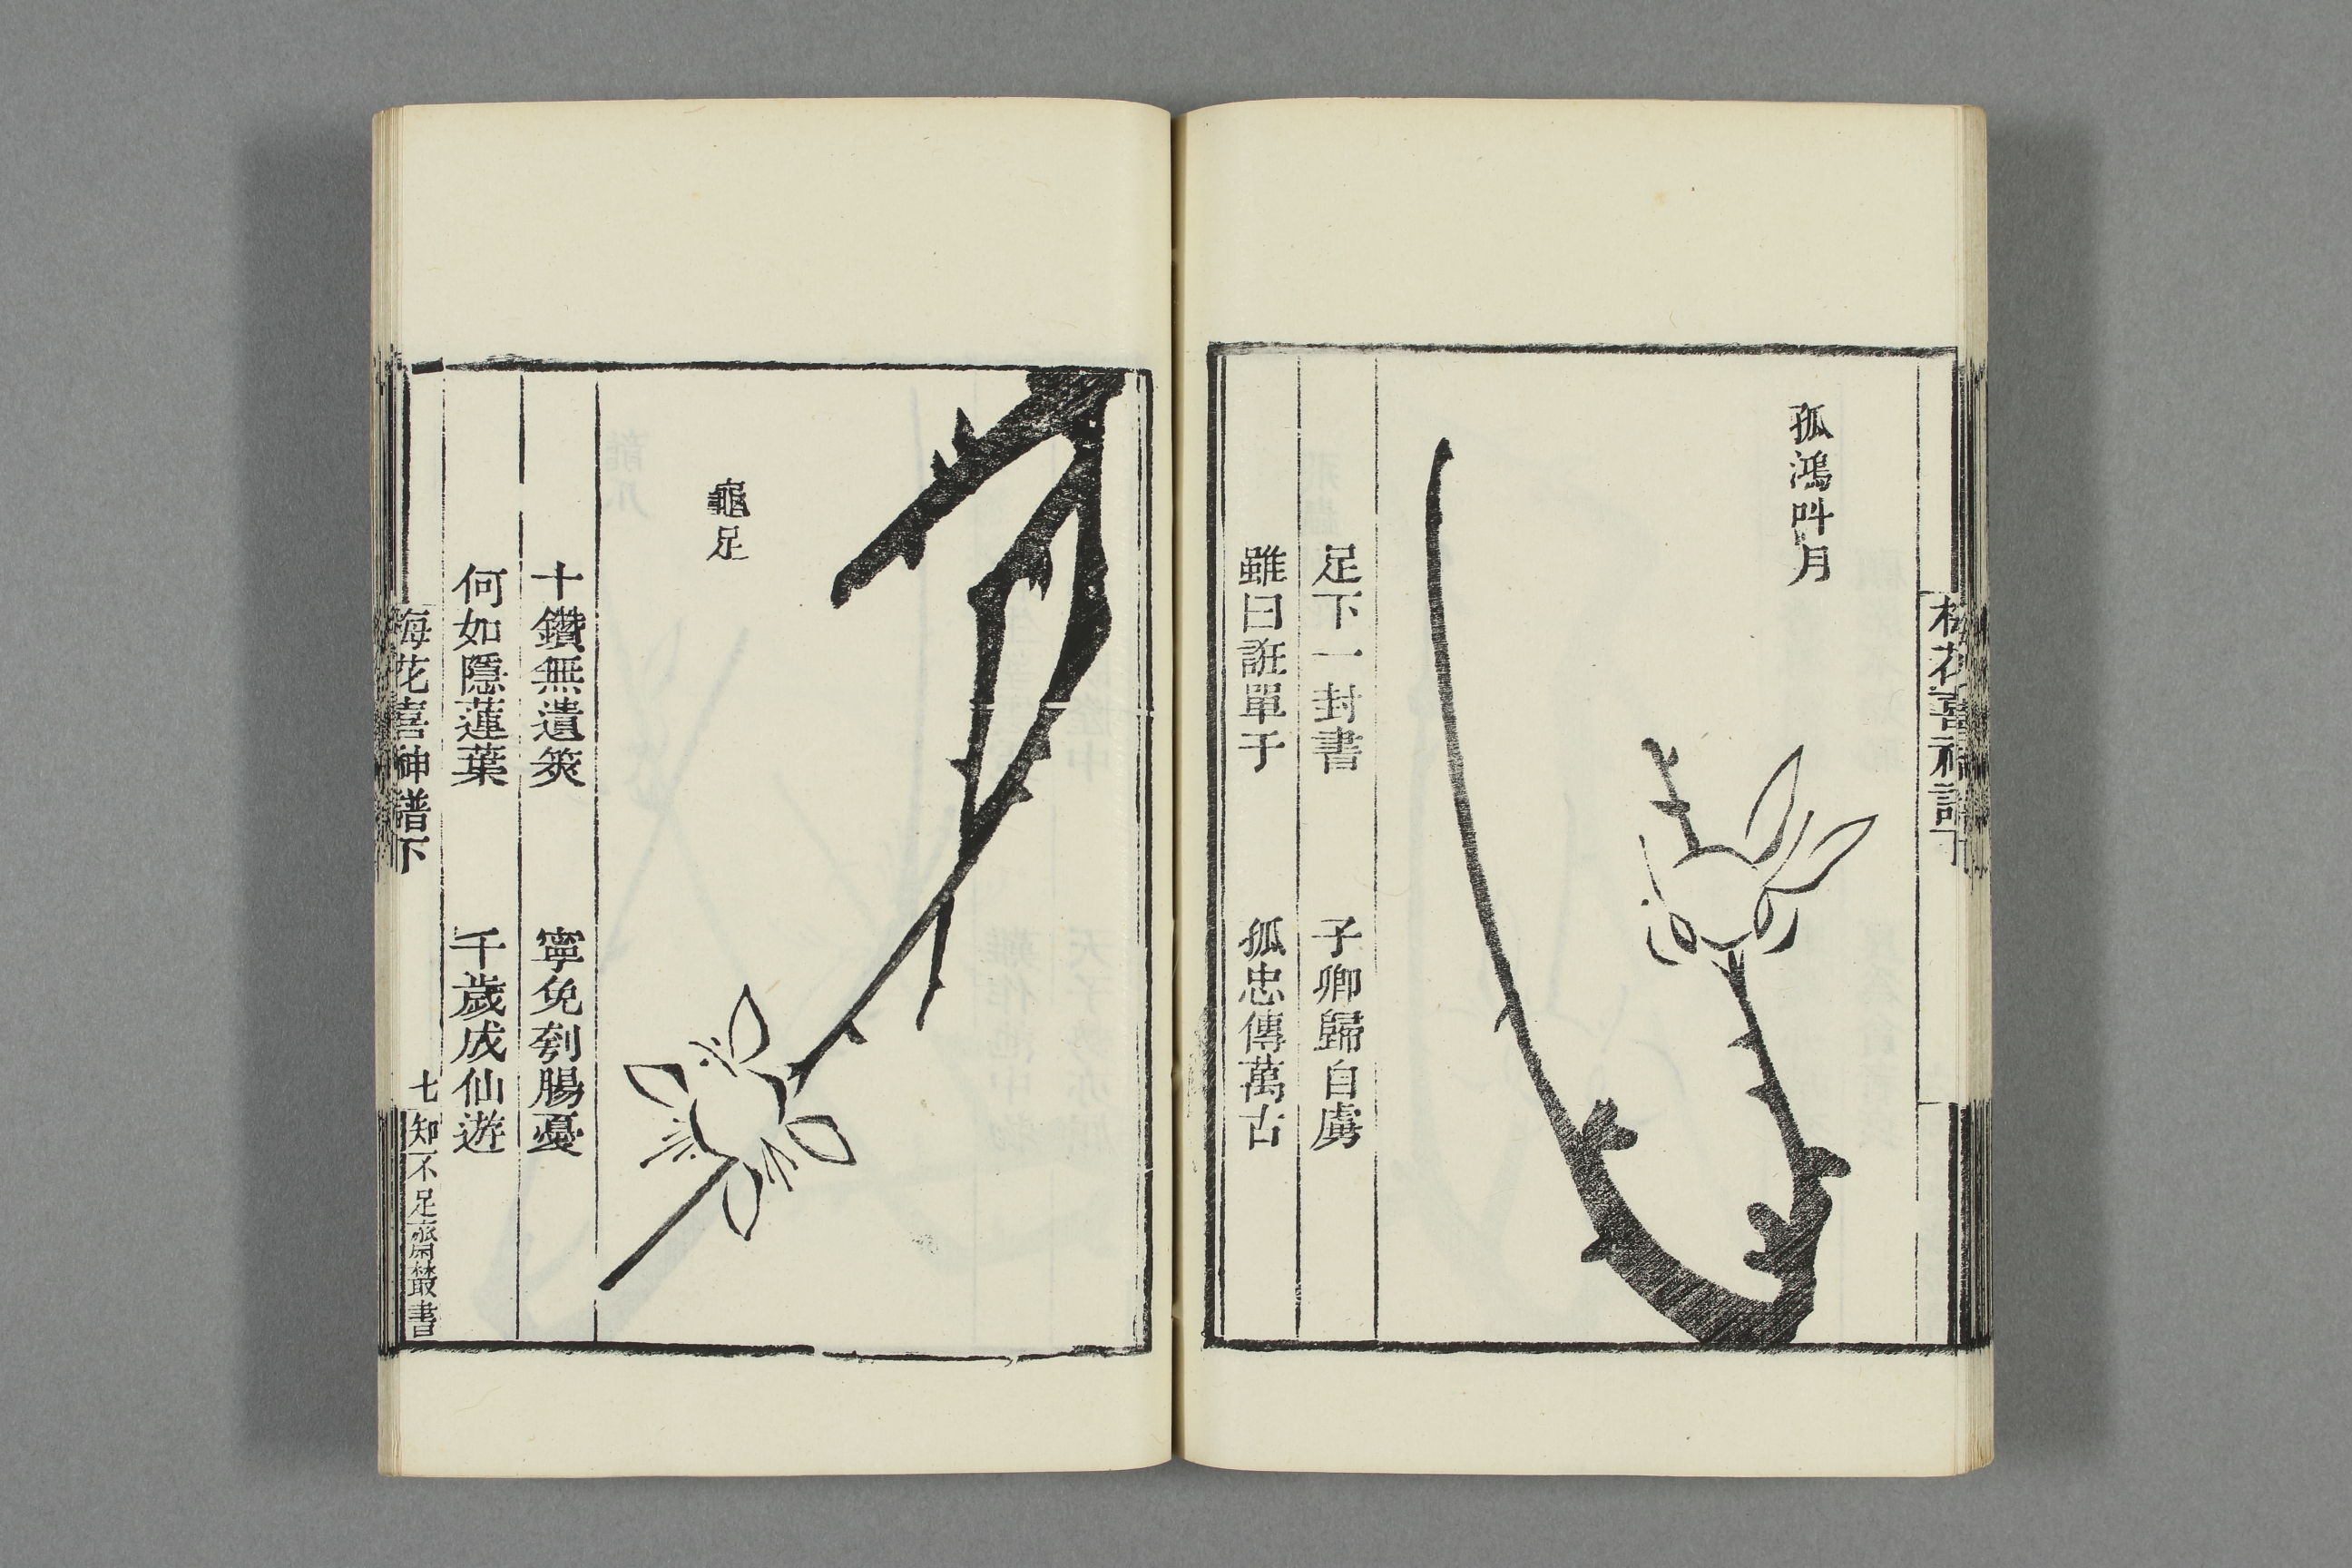 梅花喜神譜下
孤鴻呌月
足下一封書　子卿歸自虜
雖曰誑單于　孤忠傳萬古
龜足
十鑽無遺筴　寧免刳腸憂
何如隱蓮葉　千歲成仙遊
梅花喜神譜下　七　知不足齋叢書